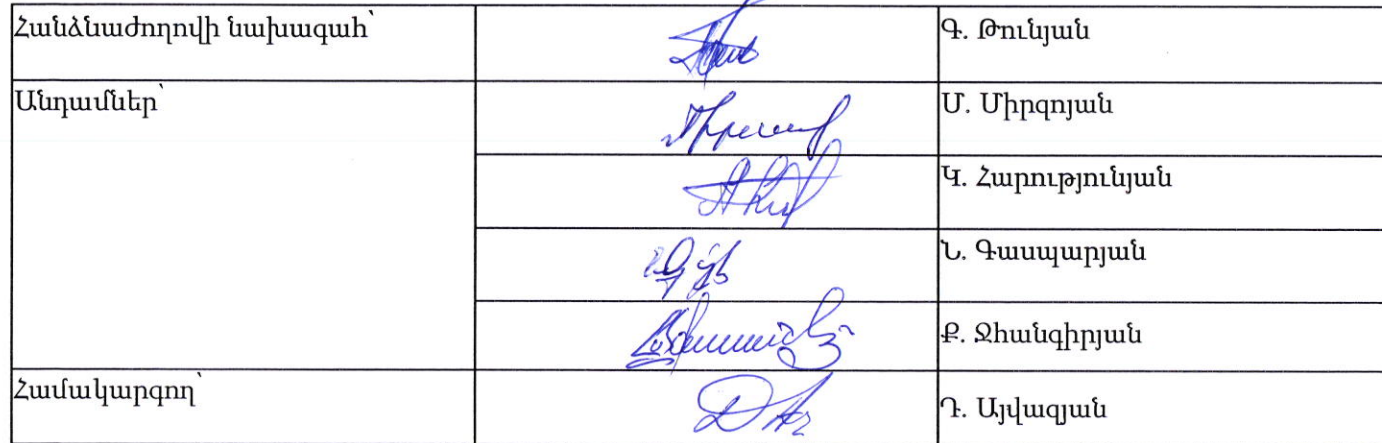 Հանձնաժողովի նախագահ՝
Գ. Թունյան
Անդամներ՝
Մ. Միրզոյան
Կ. Հարությունյան
Ն. Գասպարյան
Ք. Ջհանգիրյան
Համակարգող՝
Դ. Այվազյան